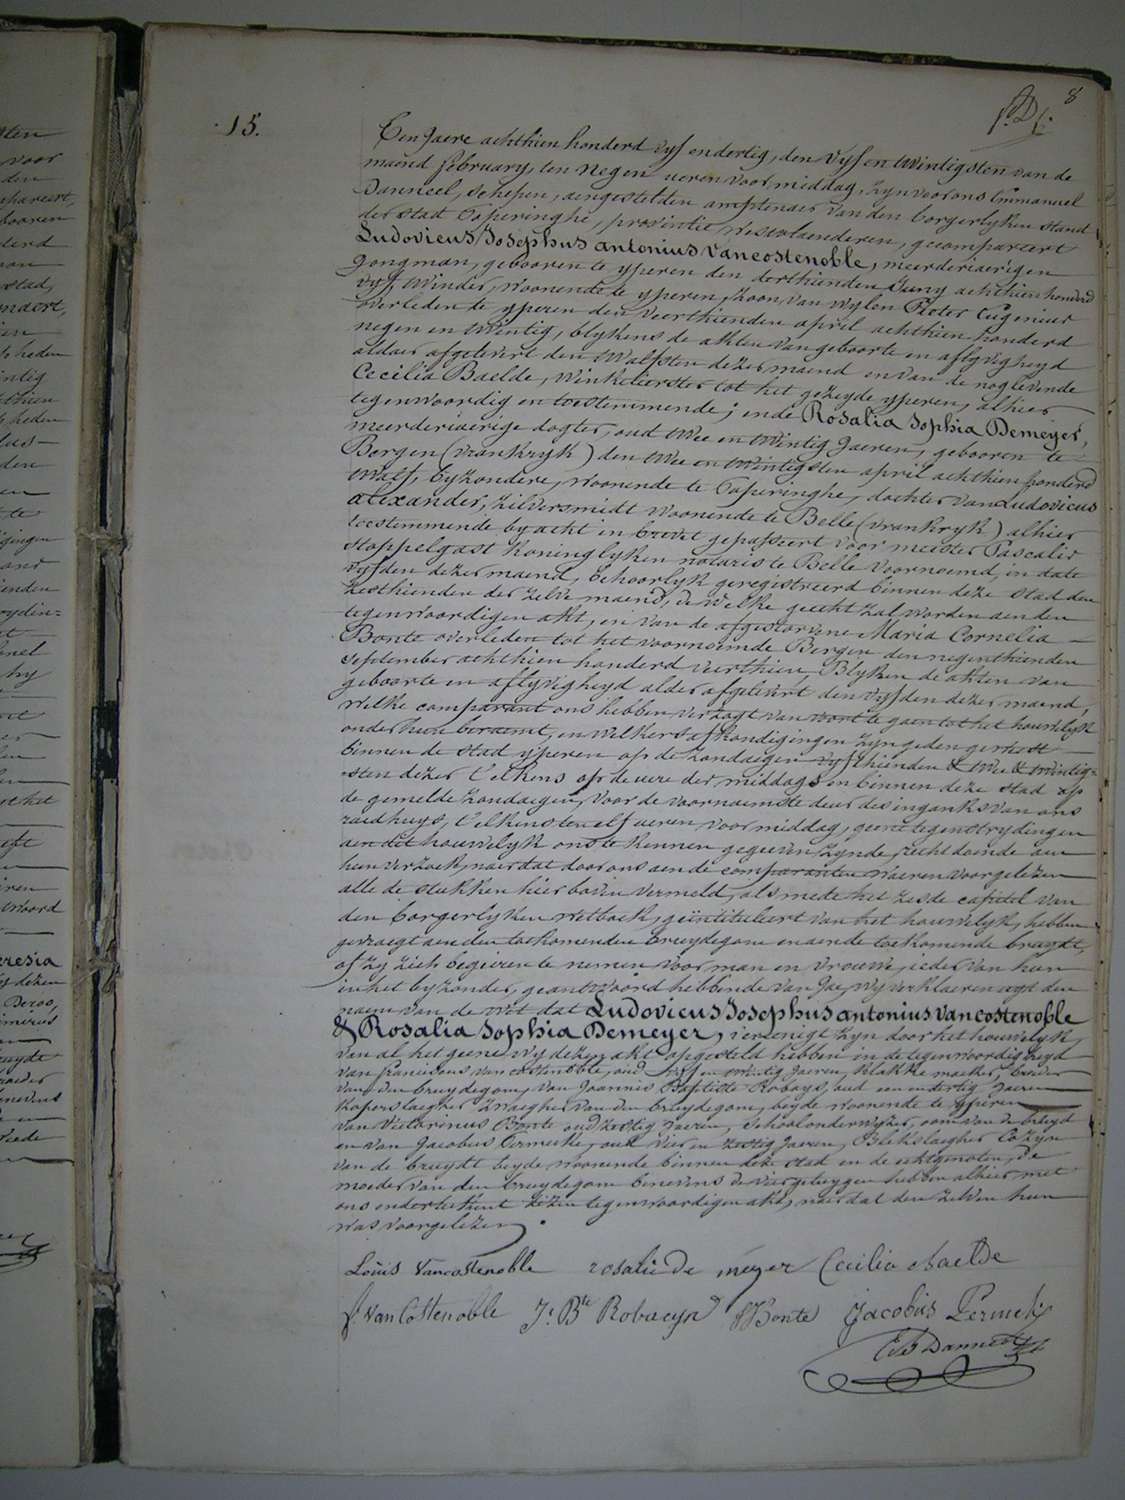 8
15.
Ten Jaere achthien honderd vyf en dertig, den vyf en twintigsten van de
maend february, ten negen ueren voor middag, zyn voor ons Emmanuel
Danneel, schepen, aengestelden amptenaer van den borgerlyken stand
der stad Poperinghe, provintie westvlaenderen, gecompareert
Ludovicus Josephus antonius Vancostenoble, meerderiaerigen
Jongman, gebooren te yperen den derthienden Juny achthien honderd
vyf, winder, woonende te yperen, zoon van wylen Pieter Eugenius
overleden te yperen den veerthienden april achthien honderd
negen en twintig, blykens de akten van geboorte en aflyvigheyd
aldaer afgelevert den twalfsten dezer maend en van de noglevende
Cecilia Baelde, winkelierster tot het gezeyde yperen, alhier
tegenwoordig en toestemmende; ende Rosalia Sophia Demeyer,
meerderiaerige dogter, oud twee en twintig Jaeren, gebooren te
Bergen (vrankryk) den twee en twintigsten april achthien honderd
twalf, byzondere, woonende te Poperinghe, dochter van Ludovicus
alexander, zilversmidt woonende te Belle (vrankryk) alhier
toestemmende by acht in brevet gepasseert voor meester Pascalis
Stoppelgast koninglyken notaris te Belle voornoemd, in date
vyfden dezer maend, behoorlyk geregistreerd binnen deze stad den
zesthienden der zelve maend, de welke gehecht zal worden aen den
tegenwoordigen akt, en van de afgestorvene Maria Cornelia
Bonte overleden tot het voornoemde Bergen den negenthienden
september achthien honderd veerthien, Blyken de akten van
geboorte en aflyvigheyd aldaer afgelevert den vyfden dezer maend,
welke comparant ons hebben verzogt van voort te gaen tot het houwelyk
onder hun beraemt, en welkers afkondigingen zyn geden gerkost
binnen de stad yperen op de zondaegen vyfthienden & twee & twintig-
sten dezer telkens op de uere der middags en binnen deze stad op
de gemelde zondaegen, voor de voornaemste deur des ingangs van ons
raedhuys, telkens ten elf ueren voor middag, geene tegenstrydingen
aen dit houwelyk ons te kennen gegeven zynde, recht doende aen
hun verzoek, naer dat door ons aen de comparanten waeren voorgelezen
alle de stukken hier boven vermeld, als mede het zesde capitel van
den borgerlyken wetboek, geïntituleert van het houwelyk, hebben
gevraegt aen den toekomenden bruydegom en aende toekomende bruydt,
of zy zich begeeren te nemen voor man en vrouwe, ieder van hun
in het byzonder, geantwoord hebbende van Jae, wy verklaeren uyt den
naem van de wet dat Ludovicus Josephus antonius Vancostenoble
& Rosalia Sophia Demeyer, vereenigt zyn door het houwelyk,
van al het geene wy dezen akt opgesteld hebben in de tegenwoordigheyd
van franciscus Vancostenoble, oud vyf en twintig Jaeren, vlakke maeker, broeder
van den bruydegom, van Joannes Baptiste Robays, oud een en dertig Jaeren
koperslaegher zwaegher van den bruydegom, beyde woonende te yperen
van Victorinus Bonte oud zestig jaeren, schoolonderwyzer, oom van de bruyd
en van Jacobus Permeke, oud vier en zestig Jaeren, Blekslaegher Cozyn
van de bruydt beyde woonende binnen deze stad en de echtgenoten, de
moeder van den bruydegom benevens de vier getuygen hebben alhier met
ons onderteekent dezen tegenwoordigen akt, naer dat den zelven hun
was voorgelezen.
Louis Vancostenoble rosalie De meyer Cecilia Baelde
f. Van Costenoble J. Bte Robaeys V Bonte Jacobus Permeke
E Danneel